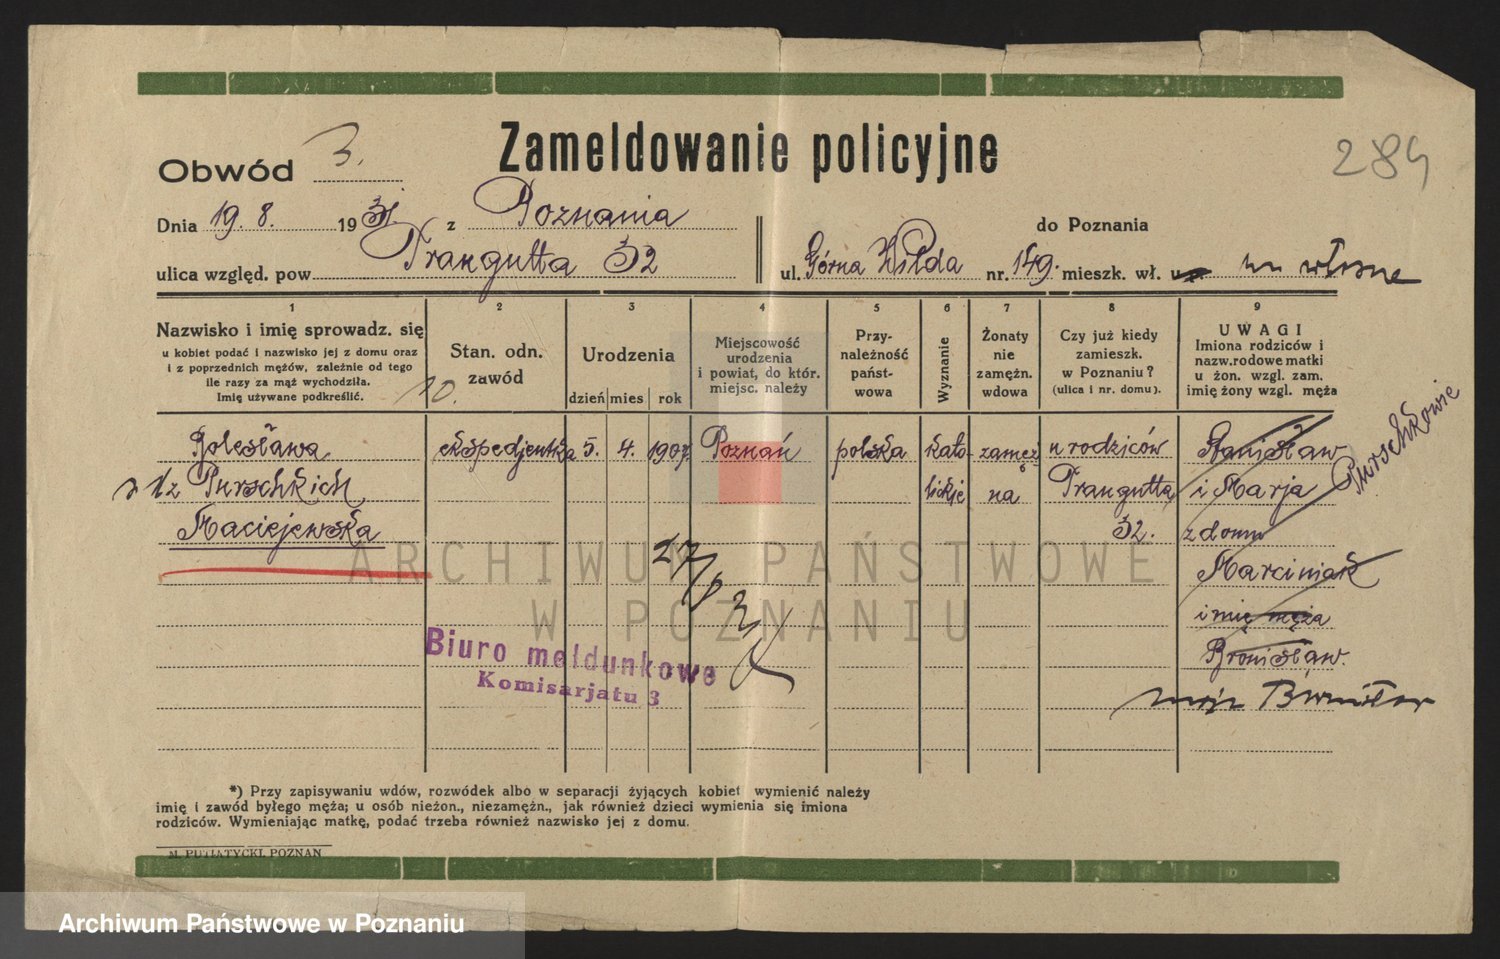 Zameldowanie policyjne
Obwód 3.
284
Dnia 19. 8. 1931. z Poznania do Poznania
ulica względ. pow. Traugutta 32 ul. Górna Wilda nr. 149. mieszk. wł. u włosne
1 2 3 4 5 6 7 8 9
Nazwisko i imię sprowadz. się
u kobiet podać i nazwisko jej z domu oraz
i z poprzednich mężów, zależnie od tego
ile razy za mąż wychodziła.
Imię używane podkreślić.
10.
Stan. odn.
zawód
Urodzenia
dzień mies rok
Miejscowość
urodzenia
i powiat, do któr.
miejsc. należy
Przy-
należność
państ-
wowa
Wyznanie
Żonaty
nie
zamężn.
wdowa
Czy już kiedy
zamieszk.
w Poznaniu?
(ulica i nr. domu).
UWAGI
Imiona rodziców i
nazw.rodowe matki
u żon. wzgl. zam.
imię żony wzgl. męża
Bolesława ekspedjentka 5. 4. 1907. Poznań polska kato- zamęż u rodziców Stanisław
z Purschkich lickie na Traugutta i Marja Purschkowie
Maciejewska 32. z domu
Marciniak
imię męża
Bronisław.
mąż Bronisław
27/8 31
ARCHIWUM PAŃSTWOWE
W POZNANIU
Biuro meldunkowe
Komisarjatu 3
*) Przy zapisywaniu wdów, rozwódek albo w separacji żyjących kobiet wymienić należy
imię i zawód byłego męża; u osób nieżon., niezamężn., jak również dzieci wymienia się imiona
rodziców. Wymieniając matkę, podać trzeba również nazwisko jej z domu.
M. PUTIATYCKI, POZNAŃ
Archiwum Państwowe w Poznaniu